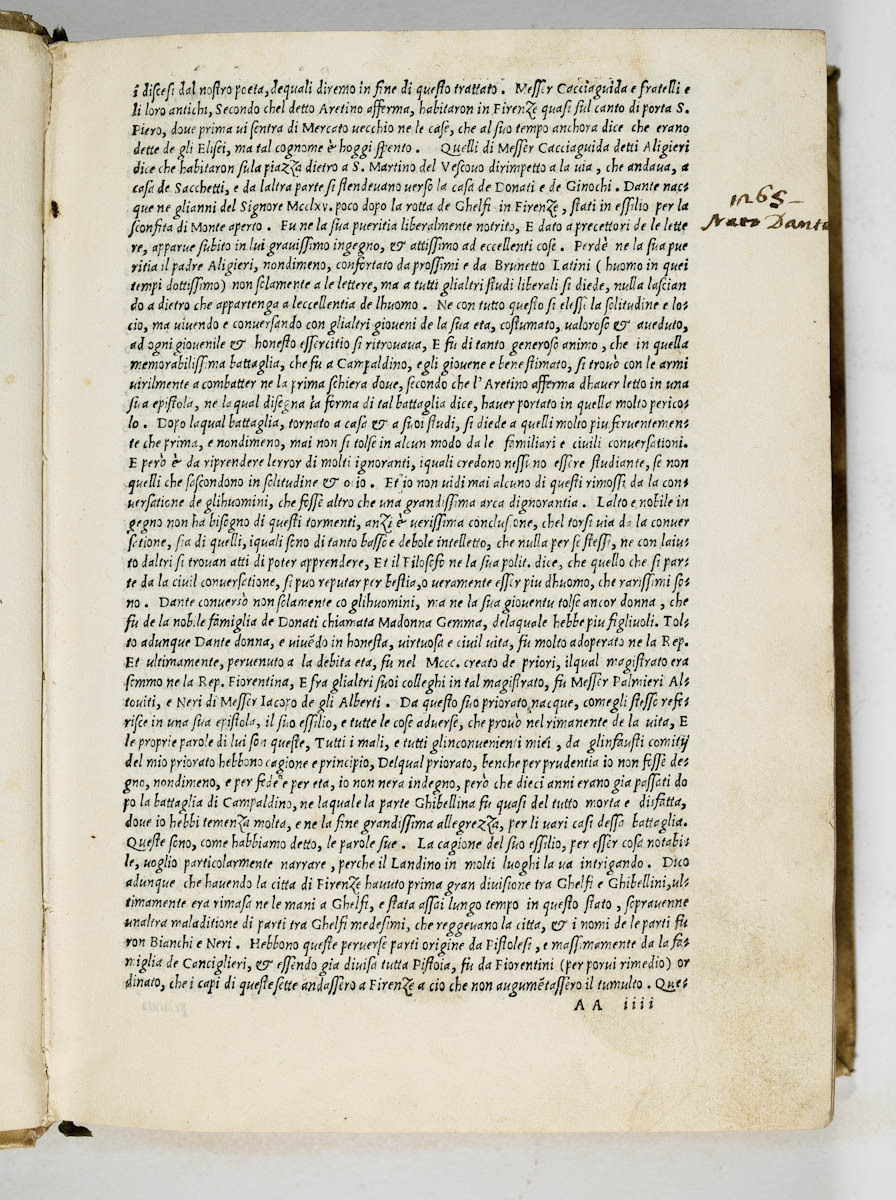 i discesi dal nostro poeta, dequali diremo in fine di questo trattato. Messer Cacciaguida e fratelli e
li loro antichi, Secondo chel detto Aretino afferma, habitaron in Firenze quasi sul canto di porta S.
Piero, dove prima vi sentra di Mercato vecchio ne le case, che al suo tempo anchora dice che erano
dette de gli Elisei, ma tal cognome è hoggi spento. Quelli di Messer Cacciaguida detti Aligieri
dice che habitaron sula piazza dietro a S. Martino del Vescovo dirimpetto a la via, che andava, a
casa de Sacchetti, e da laltra parte si stendevano verso la casa de Donati e de Ginochi. Dante nac=
que ne glianni del Signore Mcclxv. poco dopo la rotta de Ghelfi in Firenze, stati in essilio per la
1265
Nato Dante
sconfita di Monte aperto. Fu ne la sua pueritia liberalmente notrito, E dato a precettori de le lette
re, apparue subito in lui grauissimo ingegno, & attissimo ad eccellenti cose. Perdè ne la sua pue
ritia il padre Aligieri, nondimeno, confortato da prossimi e da Brunetto Latini (huomo in quei
tempi dottissimo) non solamente a le lettere, ma a tutti glialtri studi liberali si diede, nulla lascian
do a dietro che appartenga a leccellentia de lhuomo. Ne con tutto questo si elesse la solitudine e lo=
cio, ma uiuendo e conuersando con glialtri gioueni de la sua eta, costumato, ualoroso & aueduto,
ad ogni giouenile & honesto essercitio si ritrouaua, E fu di tanto generoso animo, che in quella
memorabilissima battaglia, che fu a Campaldino, egli giouene e bene stimato, si trouò con le armi
uirilmente a combatter ne la prima schiera doue, secondo che l'Aretino afferma dhauer letto in una
sua epistola, ne laqual disegna la forma di tal battaglia dice, hauer portato in quella molto perico=
lo. Dopo laqual battaglia, tornato a casa & a suoi studi, si diede a quelli molto piu feruentemen=
te che prima, e nondimeno, mai non si tolse in alcun modo da le familiari e ciuili conuersationi.
E però è da riprendere lerror di molti ignoranti, iquali credono nessuno essere studiante, se non
quelli che sascondono in solitudine & ocio. Et io non uidi mai alcuno di questi rimossi da la con=
uersatione de glihuomini, che fosse altro che una grandissima arca dignorantia. Lalto e nobile in
gegno non ha bisogno di questi tormenti, anzi è uerissima conclusione, chel torsi uia da la conuer
satione, sia di quelli, iquali sono di tanto basso e debole intelletto, che nulla per se stessi, ne con laiu=
to daltri si trouan atti di poter apprendere, Et il Filosofo ne la sua polit. dice, che quello che si par=
te da la ciuil conuersatione, si puo reputar per bestia, o ueramente esser piu dhuomo, che rarissimi so=
no. Dante conuersò non solamente co glihuomini, ma ne la sua giouentu tolse ancor donna, che
fu de la nobile famiglia de Donati chiamata Madonna Gemma, delaquale hebbe piu figliuoli. Tol=
to adunque Dante donna, e viuẽdo in honesta, uirtuosa e ciuil vita, fu molto adoperato ne la Rep.
Et ultimamente, peruenuto a la debita eta, fu nel Mccc. creato de priori, ilqual magistrato era
sommo ne la Rep. Fiorentina, E fra glialtri suoi colleghi in tal magistrato, fu Messer Palmieri Al=
touiti, e Neri di Messer Iacopo de gli Alberti. Da questo suo priorato nacque, come gli stesso refe=
risce in una sua epistola, il suo essilio, e tutte le cose aduerse, che prouò nel rimanente de la uita, E
le proprie parole di lui son queste, Tutti i mali, e tutti glinconuenienti miei, da glinfausti comitij
del mio priorato hebbono cagione e principio, Delqual priorato, benche per prudentia io non fosse de=
gno, nondimeno, e per fede e per eta, io non nera indegno, però che dieci anni erano gia passati do
po la battaglia di Campaldino, ne laquale la parte Ghibellina fu quasi del tutto morta e disfatta,
doue io hebbi temenza molta, e ne la fine grandissima allegrezza, per li uari casi dessa battaglia.
Queste sono, come habbiamo detto, le parole sue. La cagione del suo essilio, per esser cosa notabi=
le, uoglio particolarmente narrare, perche il Landino in molti luoghi la ua intrigando. Dico
adunque che hauendo la citta di Firenze hauuto prima gran diuisione tra Ghelfi e Ghibellini, ul=
timamente era rimasa ne le mani a Ghelfi, e stata assai lungo tempo in questo stato, sopravenne
unaltra maladitione di parti tra Ghelfi medesimi, che reggeuano la citta, & i nomi de le parti fu
ron Bianchi e Neri. Hebbono queste peruerse parti origine da Pistolesi, e massimamente da la fa=
miglia de Canciglieri, & essendo gia diuisa tutta Pistoia, fu da Fiorentini (per porui rimedio) or
dinato, che i capi di queste sette andassero a Firenze a cio che non augumẽtassero il tumulto. Ques=
A A iiii